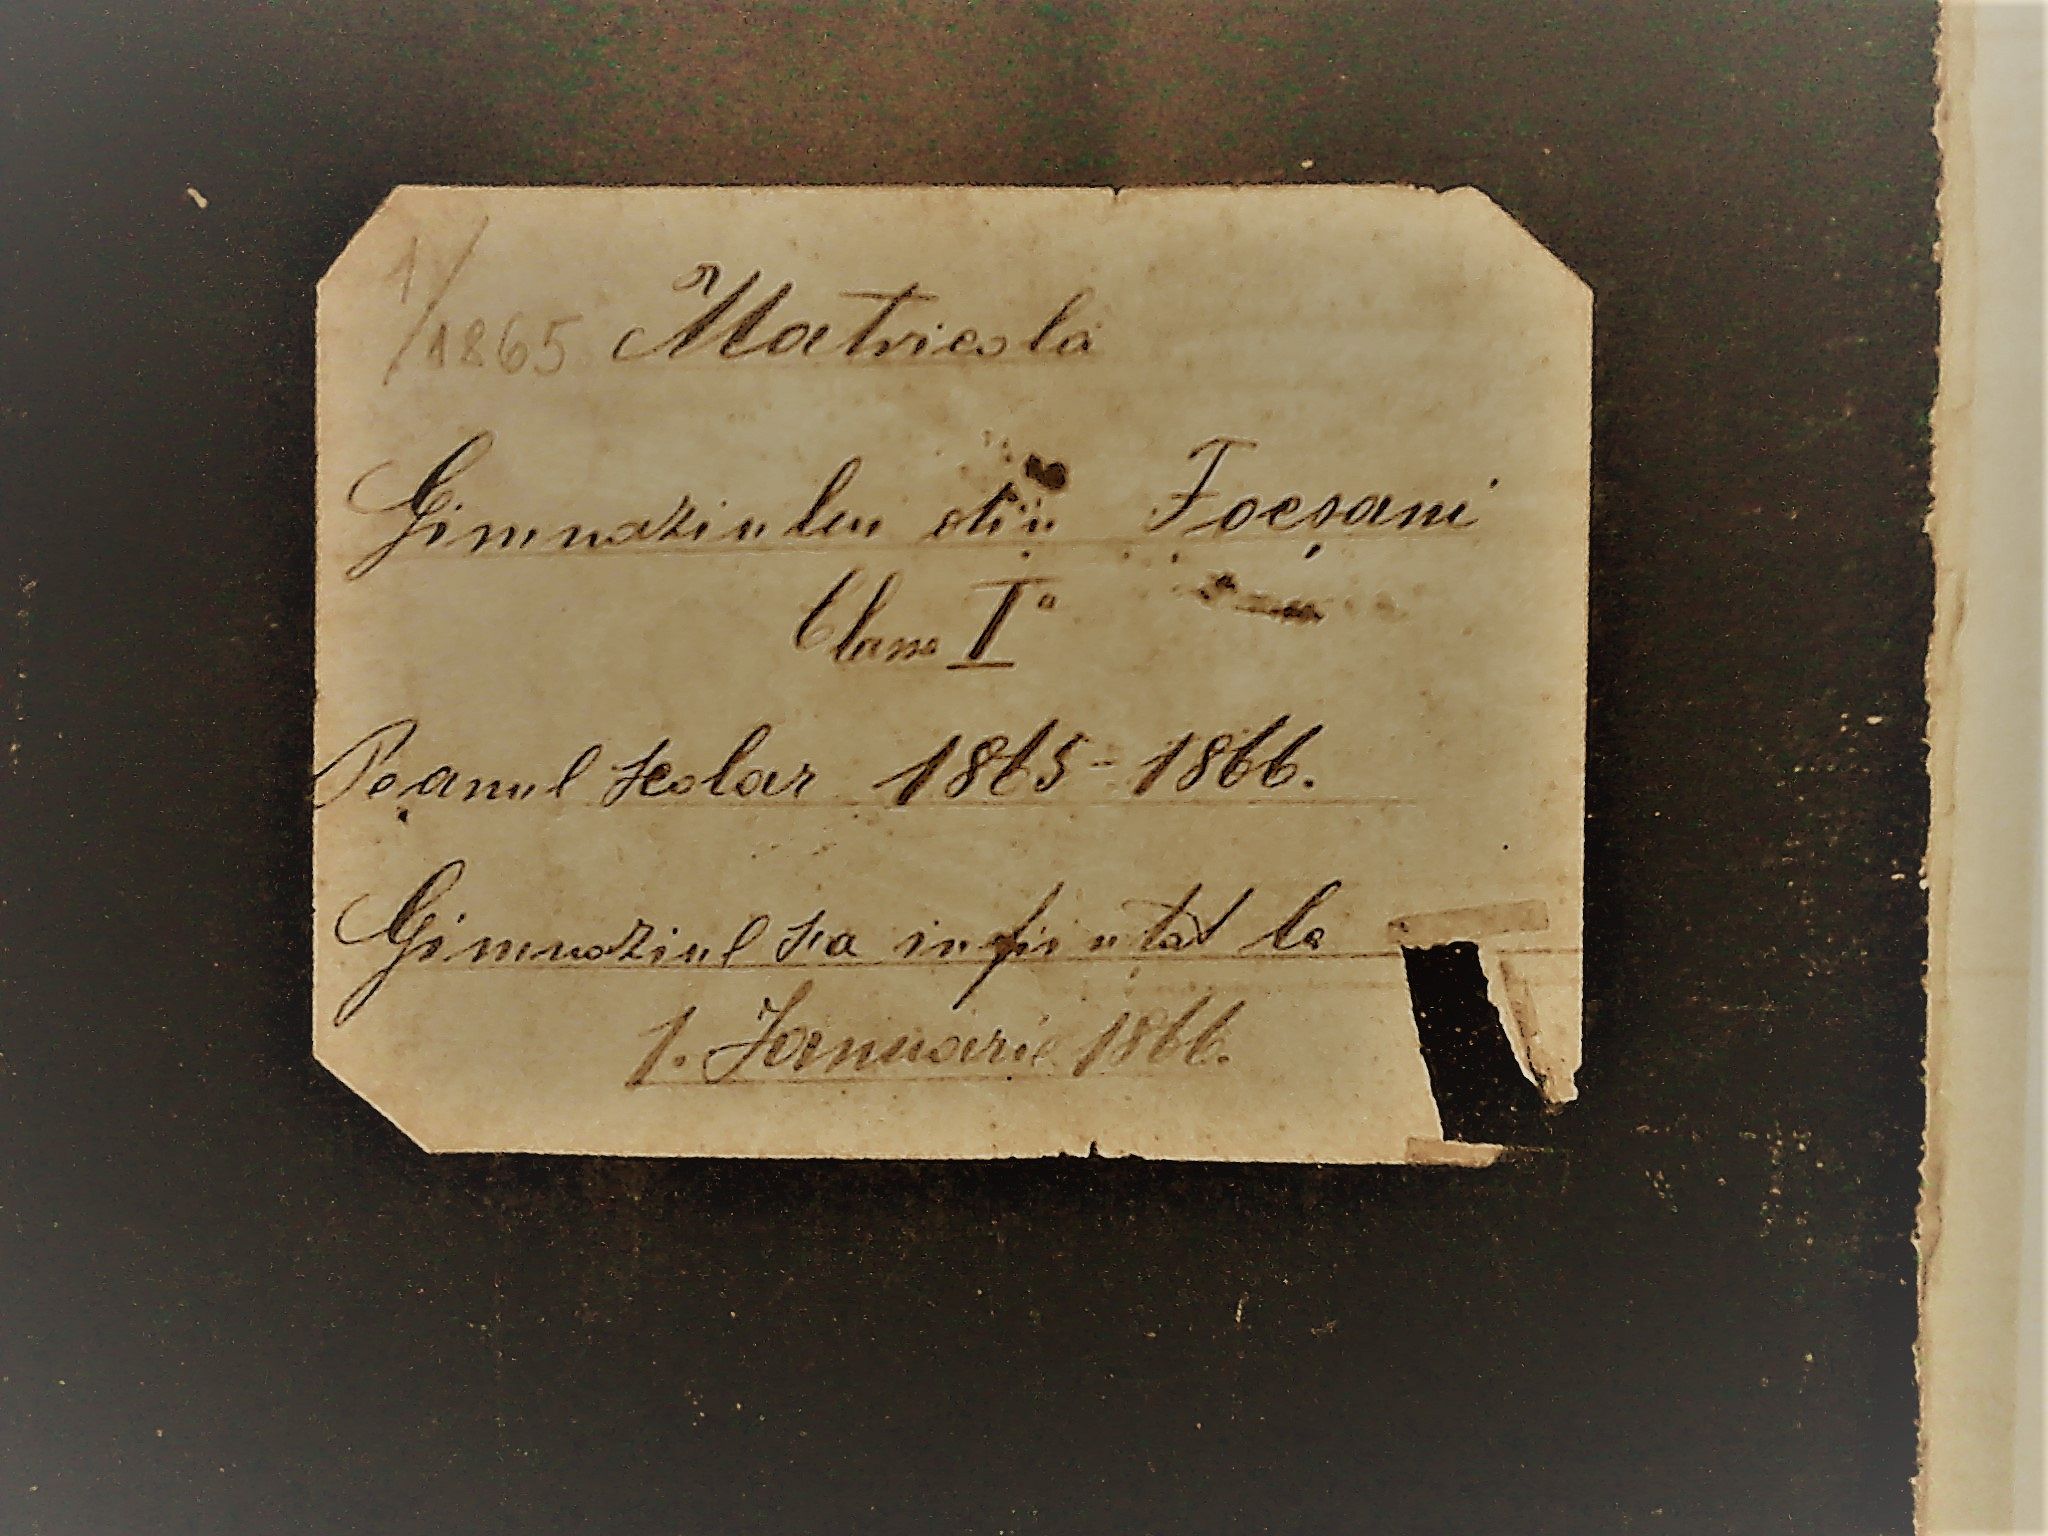 1/1865 Matricola
Gimnaziului din Focșani
Clasa I a
Pe anul scolar 1865-1866.
Gimnaziul s'a infiintat la
1. Ianuarie 1866.